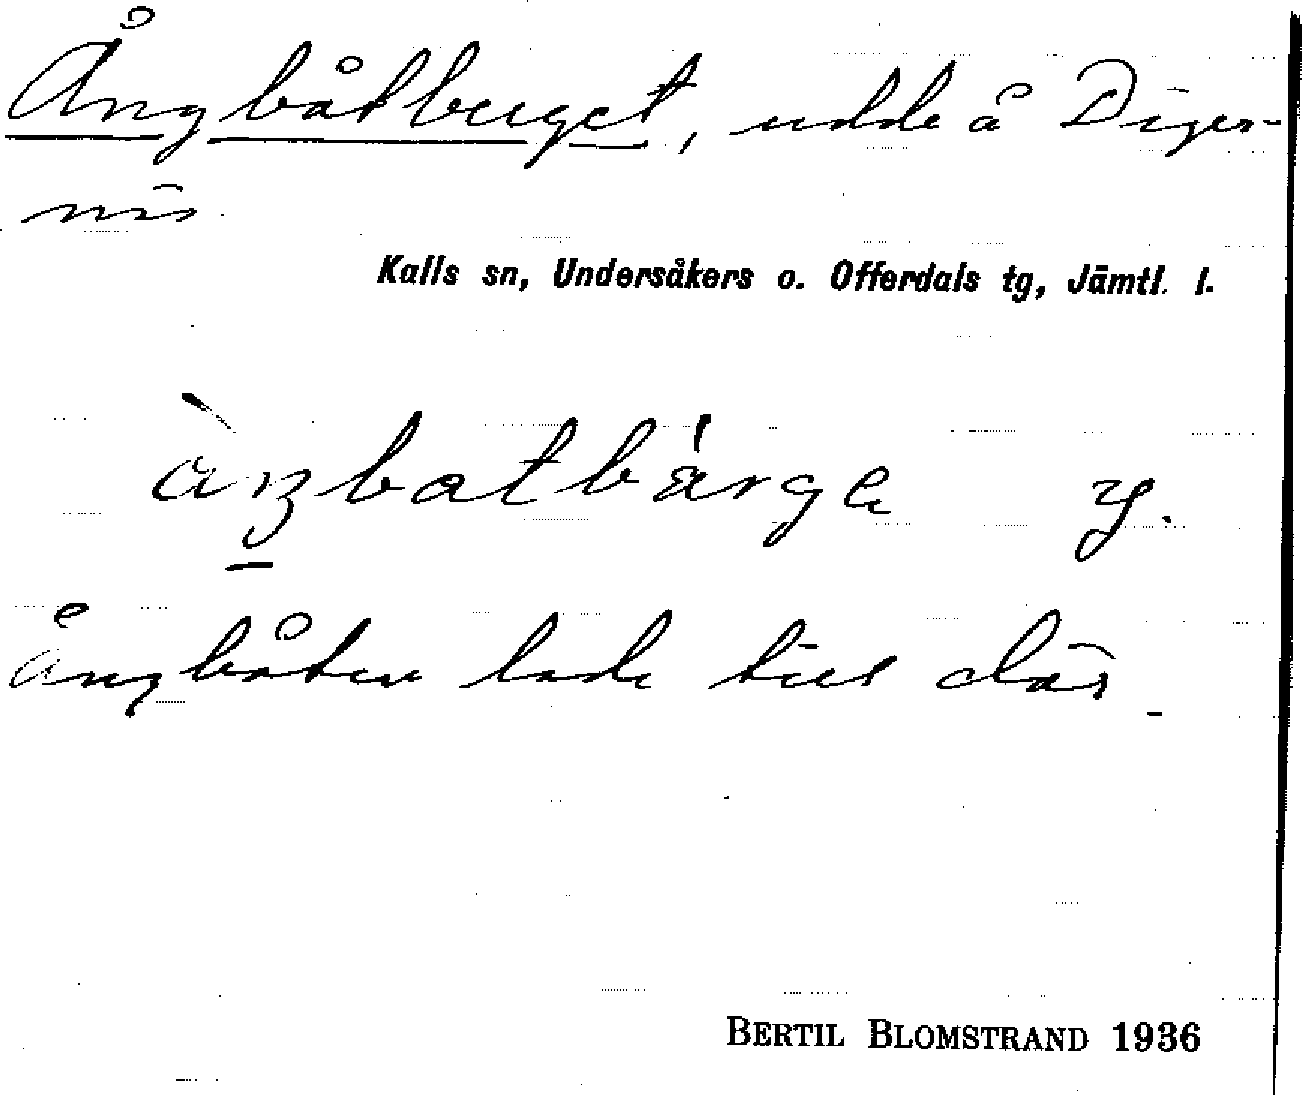 Ångbåtberget, udde å Diger-
näs
Kalls sn, Undersåkers o. Offerdals tg, Jämtl. l.
Ångbåten lade till där
BERTIL BLOMSTRAND 1936